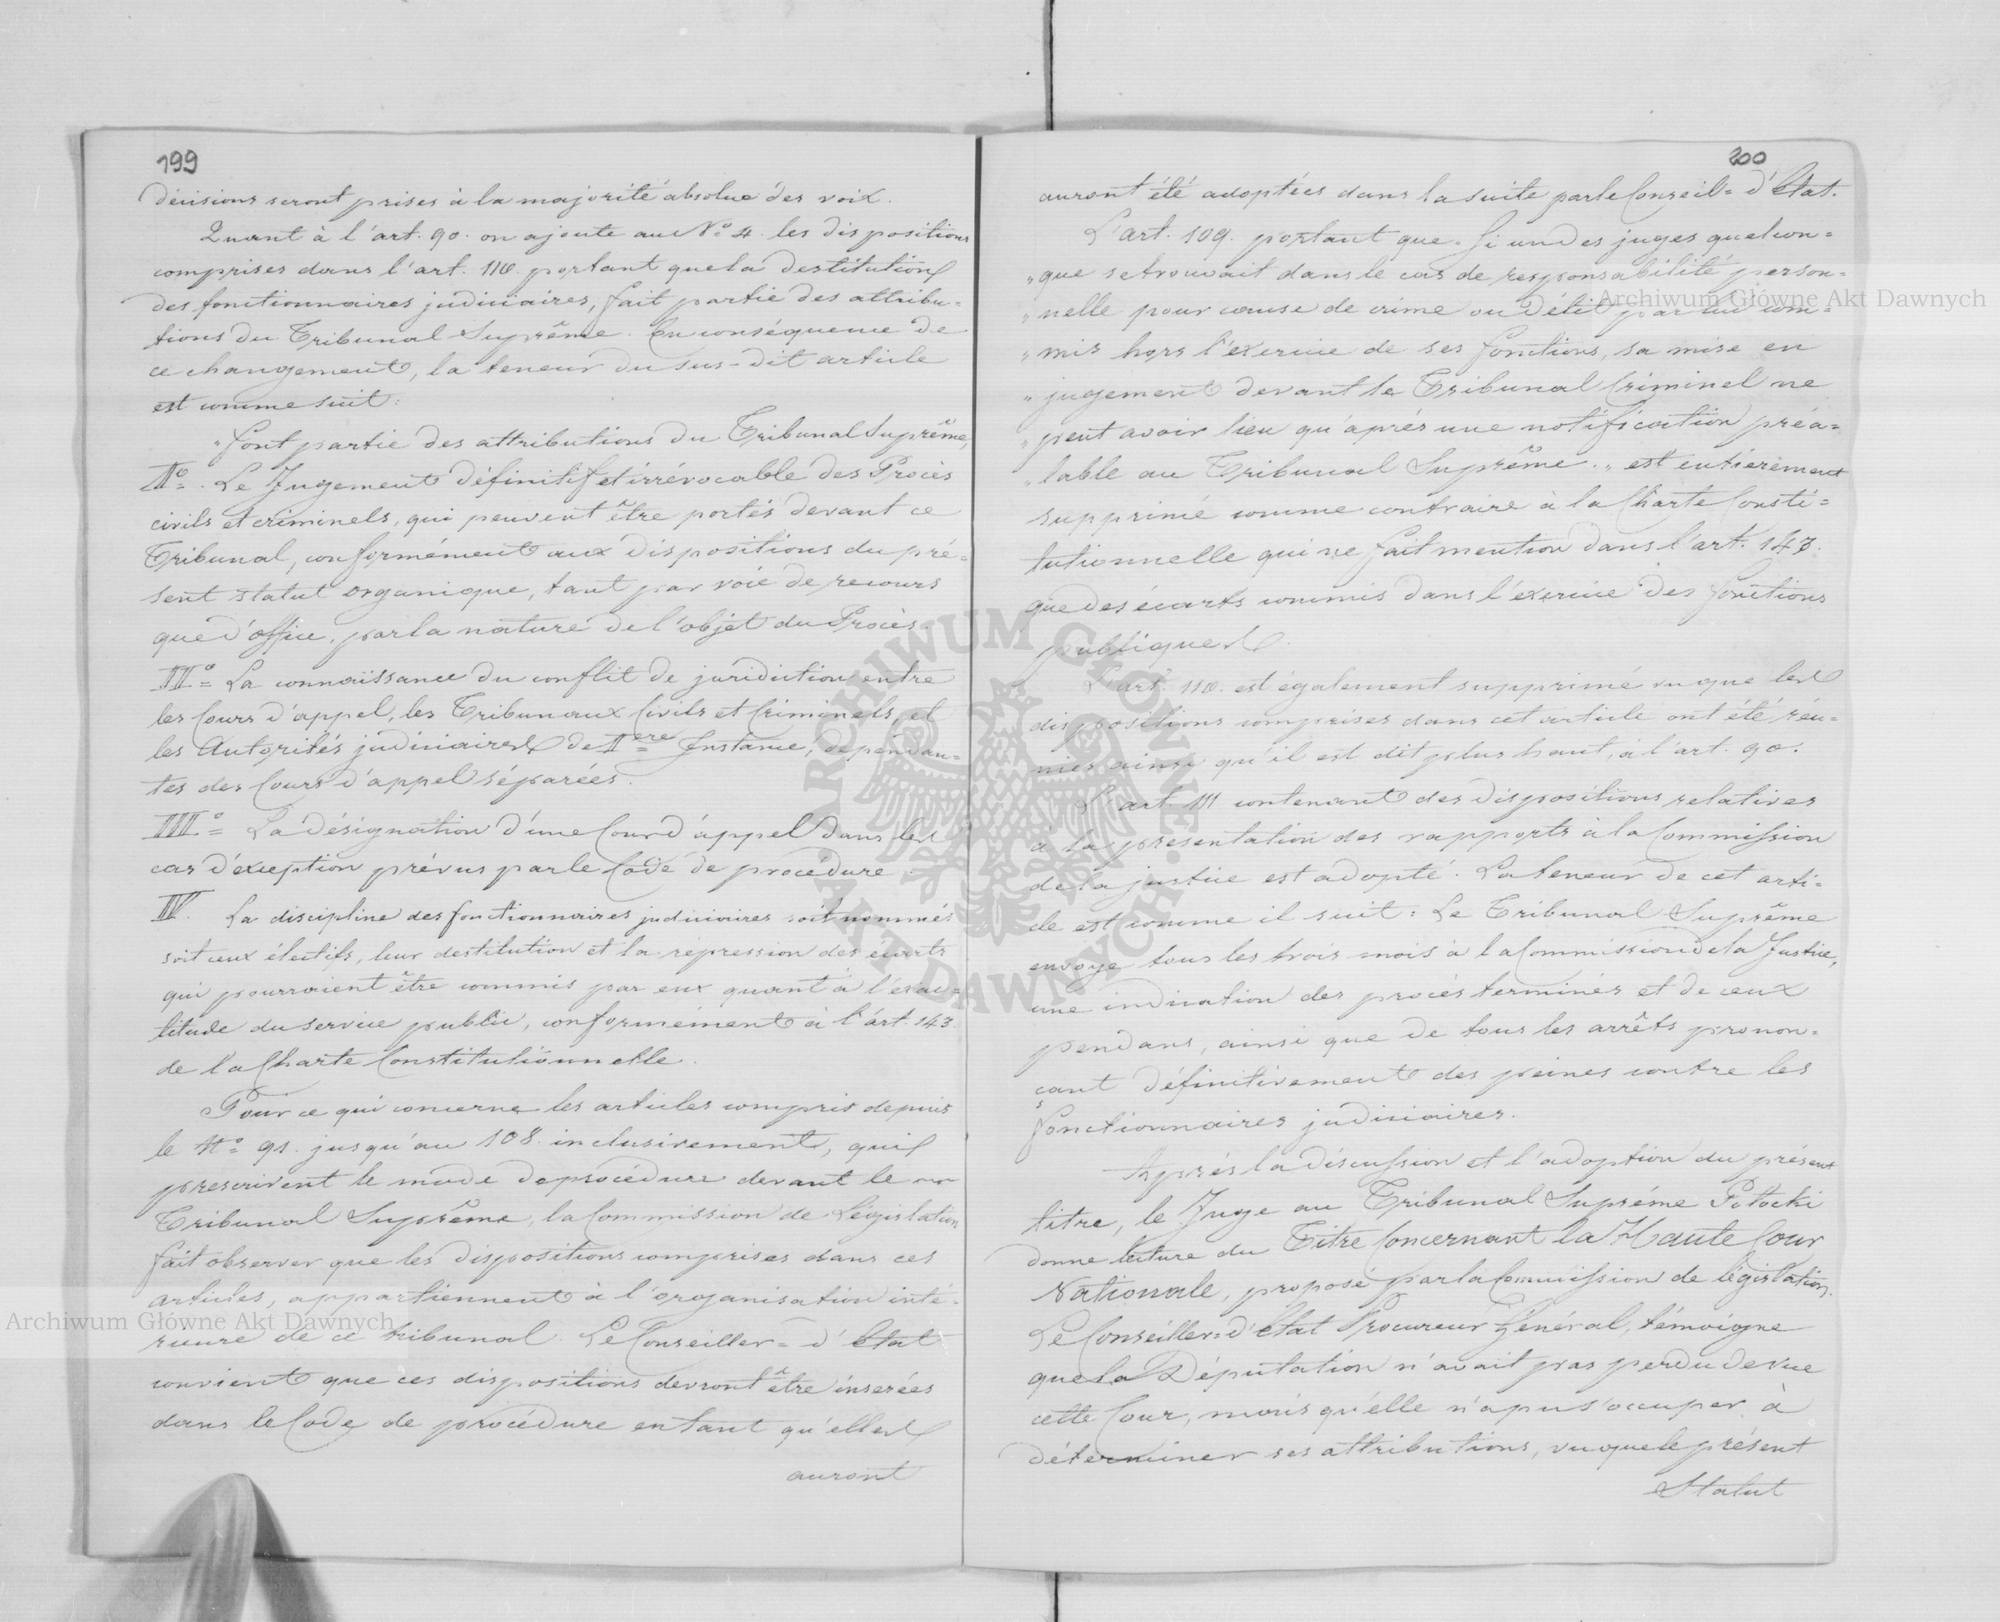 199
décisions seront prises à la majorité absolue des voix.
Quant à l'art. 90. on ajoute au Nº 4. les dispositions
comprises dans l'art. 110. portant que la destitution
des fonctionnaires judiciaires, fait partie des attribu-
tions du Tribunal Suprême. En conséquence de
ce changement, la teneur du sus-dit article
est comme suit:
"Font partie des attributions du Tribunal Suprême,
Iº. Le Jugement définitif et irrévocable des Procès
civils et criminels, qui peuvent être portés devant ce
Tribunal, conformément aux dispositions du pré-
sent statut organique, tant par voie de recours
que d'office, par la nature de l'objet du Procès.
IIº= La connaissance du conflit de juridiction entre
les Cours d'appel, les Tribunaux Civils et Criminels, et
les Autorités judiciaires de Iere Instance, dependan-
tes des Cours d'appel séparées.
IIIº= La désignation d'une Cour d'appel dans les
cas d'exception prévus par le Code de procédure.
IV. La discipline des fonctionnaires judiciaires soit nommés
soit ceux électifs, leur destitution et la répression des écarts
qui pourraient être commis par eux quant à l'exac-
titude du service public, conformément à l'art. 143.
de la Charte Constitutionnelle.
Pour ce qui concerne les articles compris depuis
le Nº 91. jusqu'au 108. inclusivement, qui
prescrivent le mode de procédure devant le
Tribunal Suprême, la Commission de Législation
fait observer que les dispositions comprises dans ces
articles, appartiennent à l'organisation inté-
rieure de ce tribunal. Le Conseiller=d'Etat
convient que ces dispositions devront être inserées
dans le Code de procédure en tant qu'elles
auront
200
auront été adoptées dans la suite par le Conseil=d'Etat.
L'art. 109. portant que "Si un des juges quelcon=
"que se trouvait dans le cas de responsabilité person=
"nelle pour cause de crime ou délit par lui com=
"mis hors l'exercice de ses fonctions, sa mise en
"jugement devant le Tribunal Criminel ne
"peut avoir lieu qu'après une notification préa=
"lable au Tribunal Suprême." est entièrement
supprimé comme contraire à la Charte Consti=
tutionnelle qui ne fait mention dans l'art. 143.
que des écarts commis dans l'exercice des fonctions
publiques.
L'art. 110. est également supprimé vu que les
dispositions comprises dans cet article ont été réu=
nies ainsi qu'il est dit plus haut, à l'art. 90.
L'art. 111 contenant des dispositions relatives
à la présentation des rapports à la Commission
de la justice est adopté. La teneur de cet arti=
cle est comme il suit: Le Tribunal Suprême
envoye tous les trois mois à la Commission de la Justice,
une indication des procès terminés et de ceux
pendans, ainsi que de tous les arrêts pronon=
çant définitivement des peines contre les
fonctionnaires judiciaires.
Après la discussion et l'adoption du présent
titre, le Juge au Tribunal Suprême Potocki
donne lecture du Titre Concernant la Haute Cour
Nationale, proposé par la Commission de législation.
Le Conseiller=d'Etat Procureur Général, témoigne
que la Députation n'avait pas perdu de vue
cette Cour, mais qu'elle n'a pu s'occuper à
déterminer ses attributions, vu que le présent
Statut
Archiwum Główne Akt Dawnych
Archiwum Główne Akt Dawnych
ARCHIWUM GŁÓWNE AKT DAWNYCH